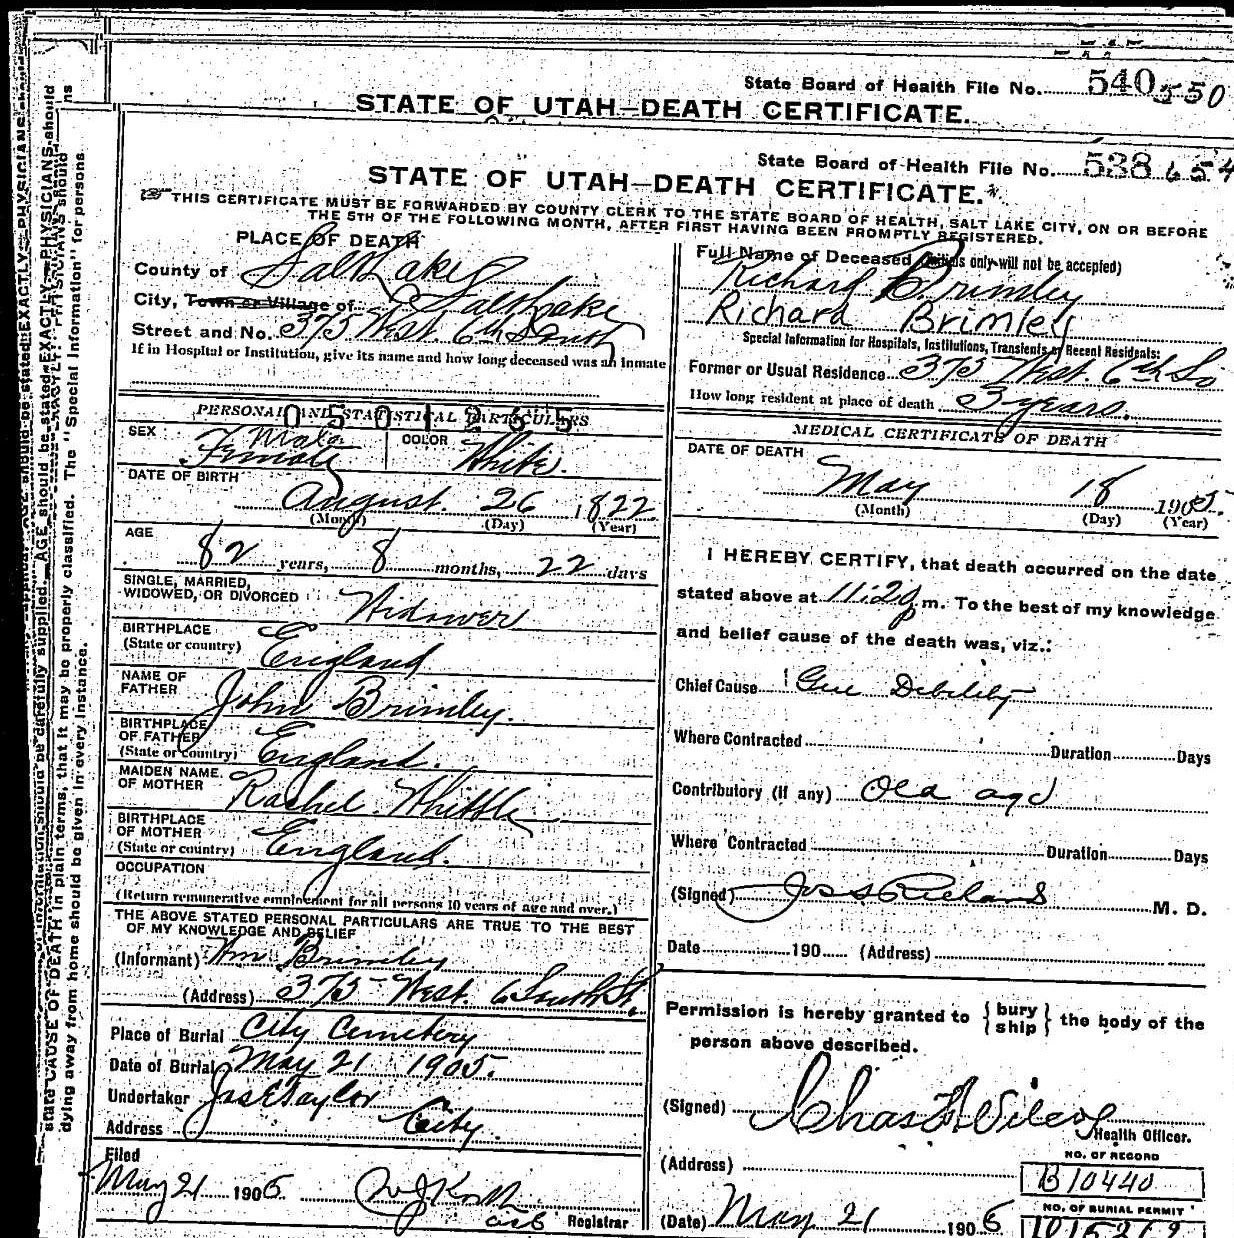 State Board of Health File No. 540 550
STATE OF UTAH—DEATH CERTIFICATE.
State Board of Health File No. 538 654
STATE OF UTAH—DEATH CERTIFICATE.
THIS CERTIFICATE MUST BE FORWARDED BY COUNTY CLERK TO THE STATE BOARD OF HEALTH, SALT LAKE CITY, ON OR BEFORE
THE 5TH OF THE FOLLOWING MONTH, AFTER FIRST HAVING BEEN PROMPTLY REGISTERED.
PLACE OF DEATH
County of Salt Lake
City, Town or Village of Salt Lake
Street and No. 375 West. 6th South
If in Hospital or Institution, give its name and how long deceased was an inmate
PERSONAL AND STATISTICAL PARTICULARS
0501255
SEX Male Female COLOR White.
DATE OF BIRTH
August. 26 1822
(Month) (Day) (Year)
AGE
82 years, 8 months, 22 days
SINGLE, MARRIED,
WIDOWED, OR DIVORCED Widower
BIRTHPLACE
(State or country) England
NAME OF
FATHER John Brimley.
BIRTHPLACE
OF FATHER
(State or country) England.
MAIDEN NAME
OF MOTHER Rachel Whittle
BIRTHPLACE
OF MOTHER
(State or country) England.
OCCUPATION
(Return remunerative employment for all persons 10 years of age and over.)
THE ABOVE STATED PERSONAL PARTICULARS ARE TRUE TO THE BEST
OF MY KNOWLEDGE AND BELIEF
(Informant) Wm. Brimley
(Address) 375 West. 6 South St.
Place of Burial City Cemetery
Date of Burial May 21 1905.
Undertaker Jos E Taylor
Address City.
Filed
May 21 1905
Registrar
Full Name of Deceased (Initials only will not be accepted)
Richard Brimley
Richard Brimley
Special Information for Hospitals, Institutions, Transients, or Recent Residents:
Former or Usual Residence 375 West. 6th So
How long resident at place of death 3 years.
MEDICAL CERTIFICATE OF DEATH
DATE OF DEATH
May 18 1905.
(Month) (Day) (Year)
I HEREBY CERTIFY, that death occurred on the date
stated above at 11:20 p.m. To the best of my knowledge
and belief cause of the death was, viz.:
Chief Cause Gen Debility
Where Contracted Duration Days
Contributory (if any) Old age
Where Contracted Duration Days
(Signed) Jos S Richards M. D.
Date 190 (Address)
Permission is hereby granted to { bury
ship } the body of the
person above described.
(Signed) Chas F Wilcox
Health Officer.
(Address)
NO. OF RECORD
B10440
(Date) May 21 1905
NO. OF BURIAL PERMIT
state CAUSE OF DEATH in plain terms, that it may be properly classified. The "Special Information" for persons
dying away from home should be given in every instance.